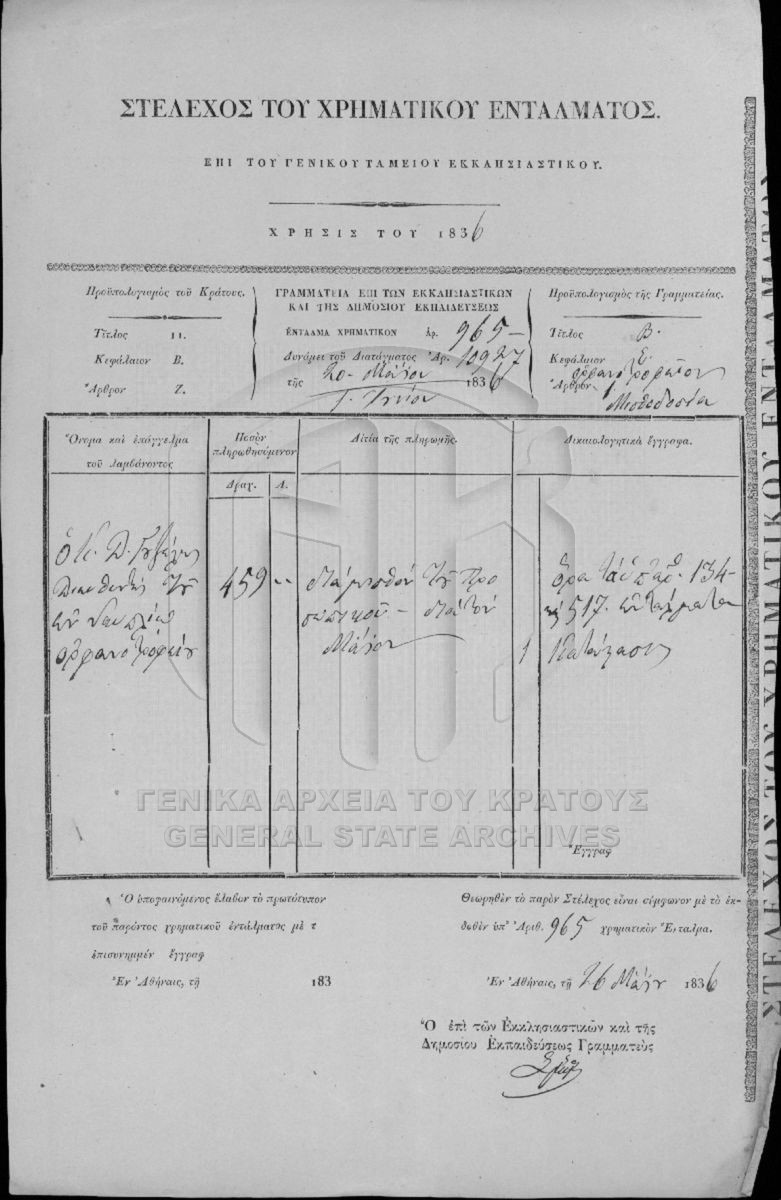 ΣΤΕΛΕΧΟΣ ΤΟΥ ΧΡΗΜΑΤΙΚΟΥ ΕΝΤΑΛΜΑΤΟΣ.
ΕΠΙ ΤΟΥ ΓΕΝΙΚΟΥ ΤΑΜΕΙΟΥ ΕΚΚΛΗΣΙΑΣΤΙΚΟΥ.
ΧΡΗΣΙΣ ΤΟΥ 1836
Προϋπολογισμὸς τοῦ Κράτους.
Τίτλος 11.
Κεφάλαιον Β.
Ἄρθρον Ζ.
ΓΡΑΜΜΑΤΕΙΑ ΕΠΙ ΤΩΝ ΕΚΚΛΗΣΙΑΣΤΙΚΩΝ
ΚΑΙ ΤΗΣ ΔΗΜΟΣΙΟΥ ΕΚΠΑΙΔΕΥΣΕΩΣ
ΕΝΤΑΛΜΑ ΧΡΗΜΑΤΙΚΟΝ Ἀρ. 965
Δυνάμει τοῦ Διατάγματος Ἀρ. 10927
τῆς 20 Μαΐου 1836
1. Ἰουνίου
Προϋπολογισμὸς τῆς Γραμματείας.
Τίτλος Β.
Κεφάλαιον Ε.
ὀρφανοτροφεῖον
Ἄρθρον 1
Μισθοδοσία
Ὄνομα καὶ ἐπάγγελμα
τοῦ λαμβάνοντος
Ποσὸν
πληρωθησόμενον
Δραχ. Λ.
Αἰτία τῆς πληρωμῆς.
Δικαιολογητικὰ ἔγγραφα.
ὁ Κ. Δ.
Διευθυντὴς τοῦ
ἐν Ναυπλίῳ
ὀρφανοτροφείου
459 --
διὰ μισθὸν τοῦ προ
σωπικοῦ - διὰ τὸν
Μάϊον
ὅρα τὰ ὑπ' ἀρ. 134
καὶ 517. ἐντάλματα
1 Κατάστασις
Ἔγγραφ
ΓΕΝΙΚΑ ΑΡΧΕΙΑ ΤΟΥ ΚΡΑΤΟΥΣ
GENERAL STATE ARCHIVES
Ὁ ὑποφαινόμενος ἔλαβον τὸ πρωτότυπον
τοῦ παρόντος χρηματικοῦ ἐντάλματος μὲ τ
ἐπισυνημμέν ἔγγραφ
Ἐν Ἀθήναις, τῇ 183
Θεωρηθὲν τὸ παρὸν Στέλεχος εἶναι σύμφωνον μὲ τὸ ἐκ-
δοθὲν ὑπ' Ἀριθ. 965 χρηματικὸν Ἔνταλμα.
Ἐν Ἀθήναις, τῇ 26 Μαΐου 1836
Ὁ ἐπὶ τῶν Ἐκκλησιαστικῶν καὶ τῆς
Δημοσίου Ἐκπαιδεύσεως Γραμματεὺς
ΣΤΕΛΕΧΟΣ ΤΟΥ ΧΡΗΜΑΤΙΚΟΥ ΕΝΤΑΛΜΑΤΩΝ